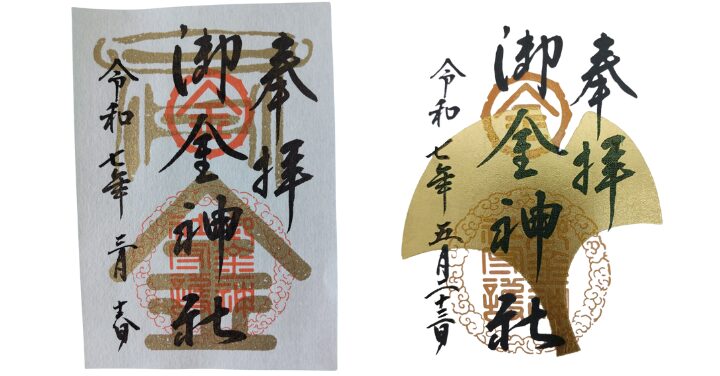 奉拝
御金神社
令和七年三月
奉拝
御金神社
令和七年五月二十三日